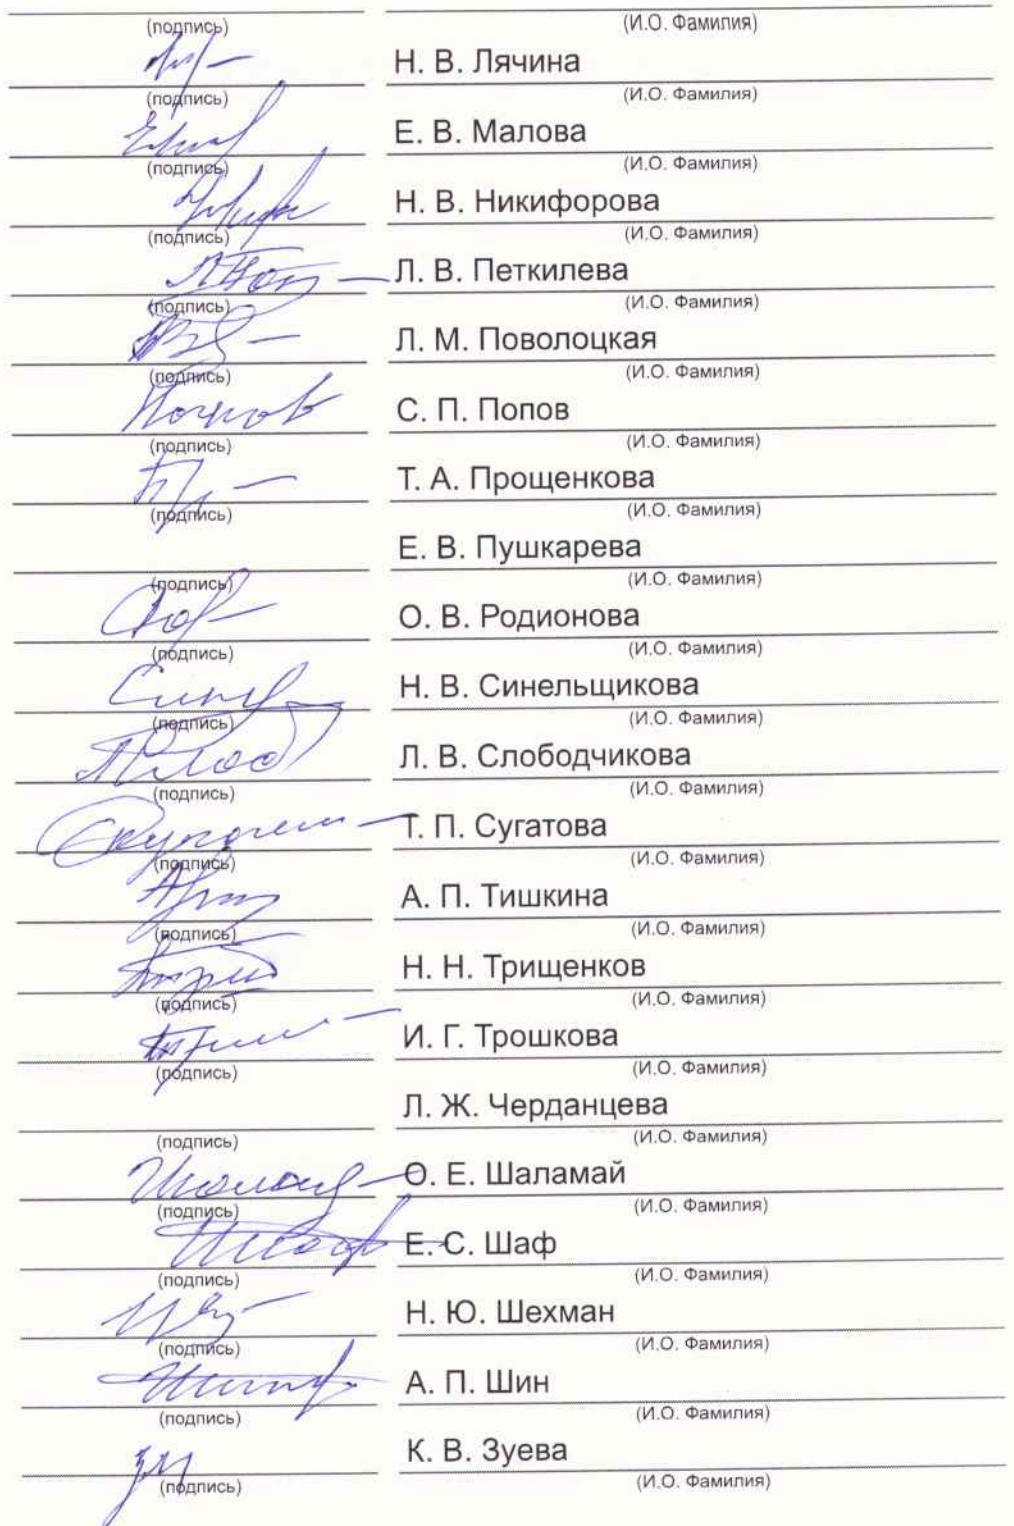 (подпись) (И.О. Фамилия)
Н. В. Лячина
(подпись) (И.О. Фамилия)
Е. В. Малова
(подпись) (И.О. Фамилия)
Н. В. Никифорова
(подпись) (И.О. Фамилия)
Л. В. Петкилева
(подпись) (И.О. Фамилия)
Л. М. Поволоцкая
(подпись) (И.О. Фамилия)
С. П. Попов
(подпись) (И.О. Фамилия)
Т. А. Прощенкова
(подпись) (И.О. Фамилия)
Е. В. Пушкарева
(подпись) (И.О. Фамилия)
О. В. Родионова
(подпись) (И.О. Фамилия)
Н. В. Синельщикова
(подпись) (И.О. Фамилия)
Л. В. Слободчикова
(подпись) (И.О. Фамилия)
Т. П. Сугатова
(подпись) (И.О. Фамилия)
А. П. Тишкина
(подпись) (И.О. Фамилия)
Н. Н. Трищенков
(подпись) (И.О. Фамилия)
И. Г. Трошкова
(подпись) (И.О. Фамилия)
Л. Ж. Черданцева
(подпись) (И.О. Фамилия)
О. Е. Шаламай
(подпись) (И.О. Фамилия)
Е. С. Шаф
(подпись) (И.О. Фамилия)
Н. Ю. Шехман
(подпись) (И.О. Фамилия)
А. П. Шин
(подпись) (И.О. Фамилия)
К. В. Зуева
(подпись) (И.О. Фамилия)